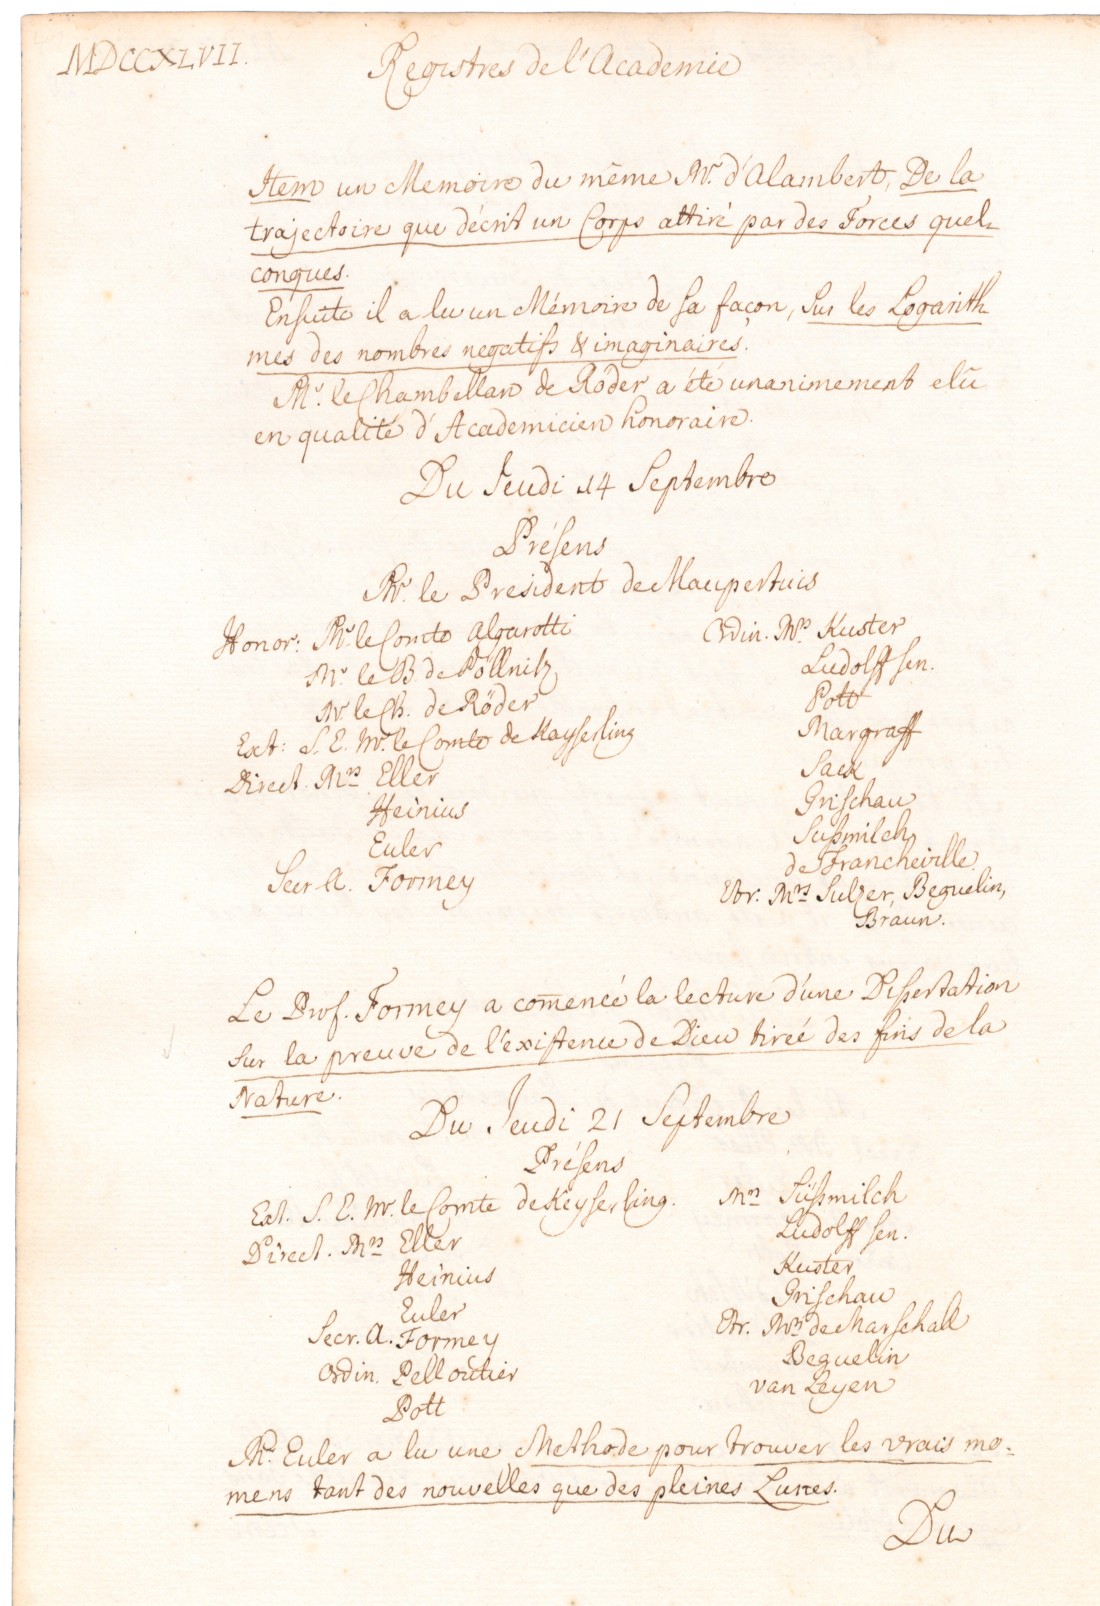 MDCCXLVII.
Registres de l'Academie
Item un Memoire du même Mr. d'Alambert, De la
trajectoire que décrit un Corps attiré par des Forces quel-
conques.
Ensuite il a lu un Mémoire de sa façon, sur les Logarith-
mes des nombres negatifs & imaginaires.
Mr. le Chambellan de Röder a été unanimement elû
en qualité d'Academicien honoraire.
Du Jeudi 14 Septembre
Présens
Mr. le President de Maupertuis
Honor: Mr. le Comte Algarotti
Mr. le B. de Pöllnitz
Mr. le Ch. de Röder
Ext: S. E. Mr. le Comte de Kayserling
Direct. Mrs Eller
Heinius
Euler
Secr. A. Formey
Ordin. Mrs. Kuster
Ludolff sen.
Pott
Margraff
Sack
Grischau
Sußmilch
de Francheville.
Etr. Mrs Sulzer, Beguelin,
Braun.
Le Prof. Formey a com̄encé la lecture d'une Dissertation
sur la preuve de l'existence de Dieu tirée des fins de la
Nature.
Du Jeudi 21 Septembre
Présens
Ext. S. E. Mr. le Comte de Keyserling.
Direct. Mrs Eller
Heinius
Euler
Secr. A. Formey
Ordin. Pelloutier
Pott
Mrs Süßmilch
Ludolff sen.
Kuster
Grischau
Etr. Mrs de Marschall
Beguelin
van Leyen
Mr. Euler a lu une Methode pour trouver les vrais mo-
mens tant des nouvelles que des pleines Lunes.
Du